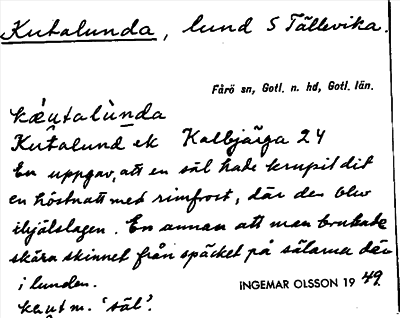 Kutalunda, lund S Tällevika.
Fårö sn, Gotl. n. hd, Gotl. län.
káutalùnda
Kutalund ek Kalbjärga 24
En uppgav, att en säl hade krupit dit
en höstnatt med rimfrost, där den blev
ihjälslagen. En annan att man brukade
skära skinnet från späcket på sälarna där
i lunden.
INGEMAR OLSSON 19 49.
kaut m. 'säl'.